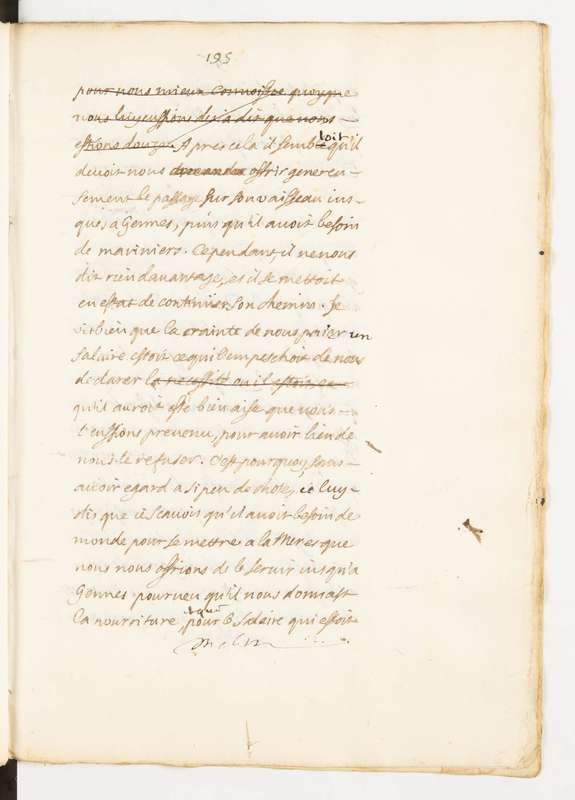 195
pour nous mieux connoistre quoyque
nous luy eussions desia dit que nous
estions douze. Apres cela il sembloit qu'il
devoit nous offrir genereu-
sement le passage sur son vaisseau ius-
ques a Gennes, puis qu'il avoit besoin
de mariniers. Cependant, il ne nous
dit rien davantage, et il se mettoit
en estat de continuer son chemin. Je
vis bien que la crainte de nous paier un
salaire estoit ce qui l'empeschoit de nous
declarer la necessité ou il estoit, et
qu'il auroit esté bien aise que nous
l'eussions prevenu, pour avoir lieu de
nous le refuser. C'est pourquoy, sans
avoir egard a si peu de chose, ie luy
dis que ie scavois qu'il avoit besoin de
monde pour se mettre a la Mer et que
nous nous offrions de le servir iusqu'a
Gennes pourveu qu'il nous donnast
la nourriture, pour le salaire qui estoit